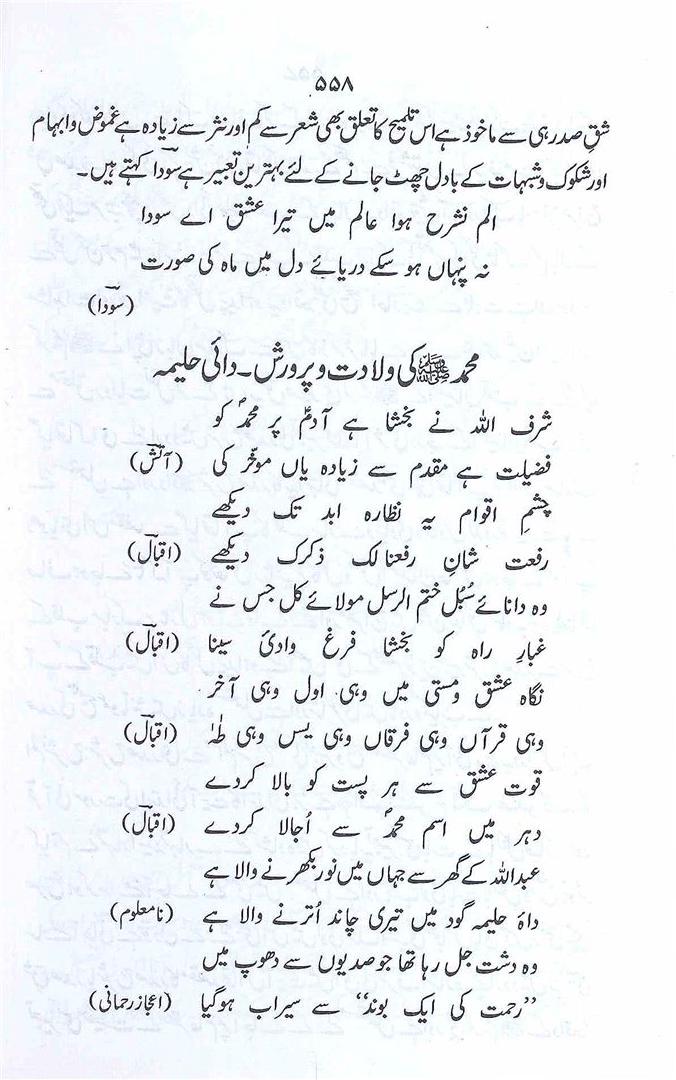 ۵۵۸
شقِ صدر ہی سے ماخوذ ہے اس تلمیح کا تعلق بھی شعر سے کم اور نثر سے زیادہ ہے غموض و ابہام
اور شکوک و شبہات کے بادل چھٹ جانے کے لئے بہترین تعبیر ہے سودؔا کہتے ہیں۔
الم نشرح ہوا عالم میں تیرا عشق اے سودا
نہ پنہاں ہو سکے دریائے دل میں ماہ کی صورت
(سوؔدا)
محمد ﷺ کی ولادت و پرورش۔ دائی حلیمہ
شرف اللہ نے بخشا ہے آدمؑ پر محمدؐ کو
فضیلت ہے مقدم سے زیادہ یاں موخّر کی (آتشؔ)
چشمِ اقوام یہ نظارہ ابد تک دیکھے
رفعت شانِ رفعنا لک ذکرک دیکھے (اقبالؔ)
وہ دانائے سُبُل ختم الرسل مولائے کل جس نے
غبارِ راہ کو بخشا فرغ وادیٔ سینا (اقبالؔ)
نگاہ عشق و مستی میں وہی اول وہی آخر
وہی قرآں وہی فرقاں وہی یٰس وہی طٰہٰ (اقبالؔ)
قوت عشق سے ہر پست کو بالا کردے
دہر میں اسم محمدؐ سے اُجالا کردے (اقبالؔ)
عبداللہ کے گھر سے جہاں میں نور بکھرنے والا ہے
داۂ حلیمہ گود میں تیری چاند اُترنے والا ہے (نامعلوم)
وہ دشت جل رہا تھا جو صدیوں سے دھوپ میں
”رحمت کی ایک بوند“ سے سیراب ہوگیا (اعجاز رحمانی)